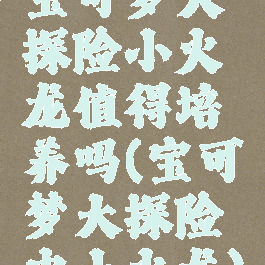 宝可梦大
探险小火
龙值得培
养吗(宝可
梦大探险
小火龙)